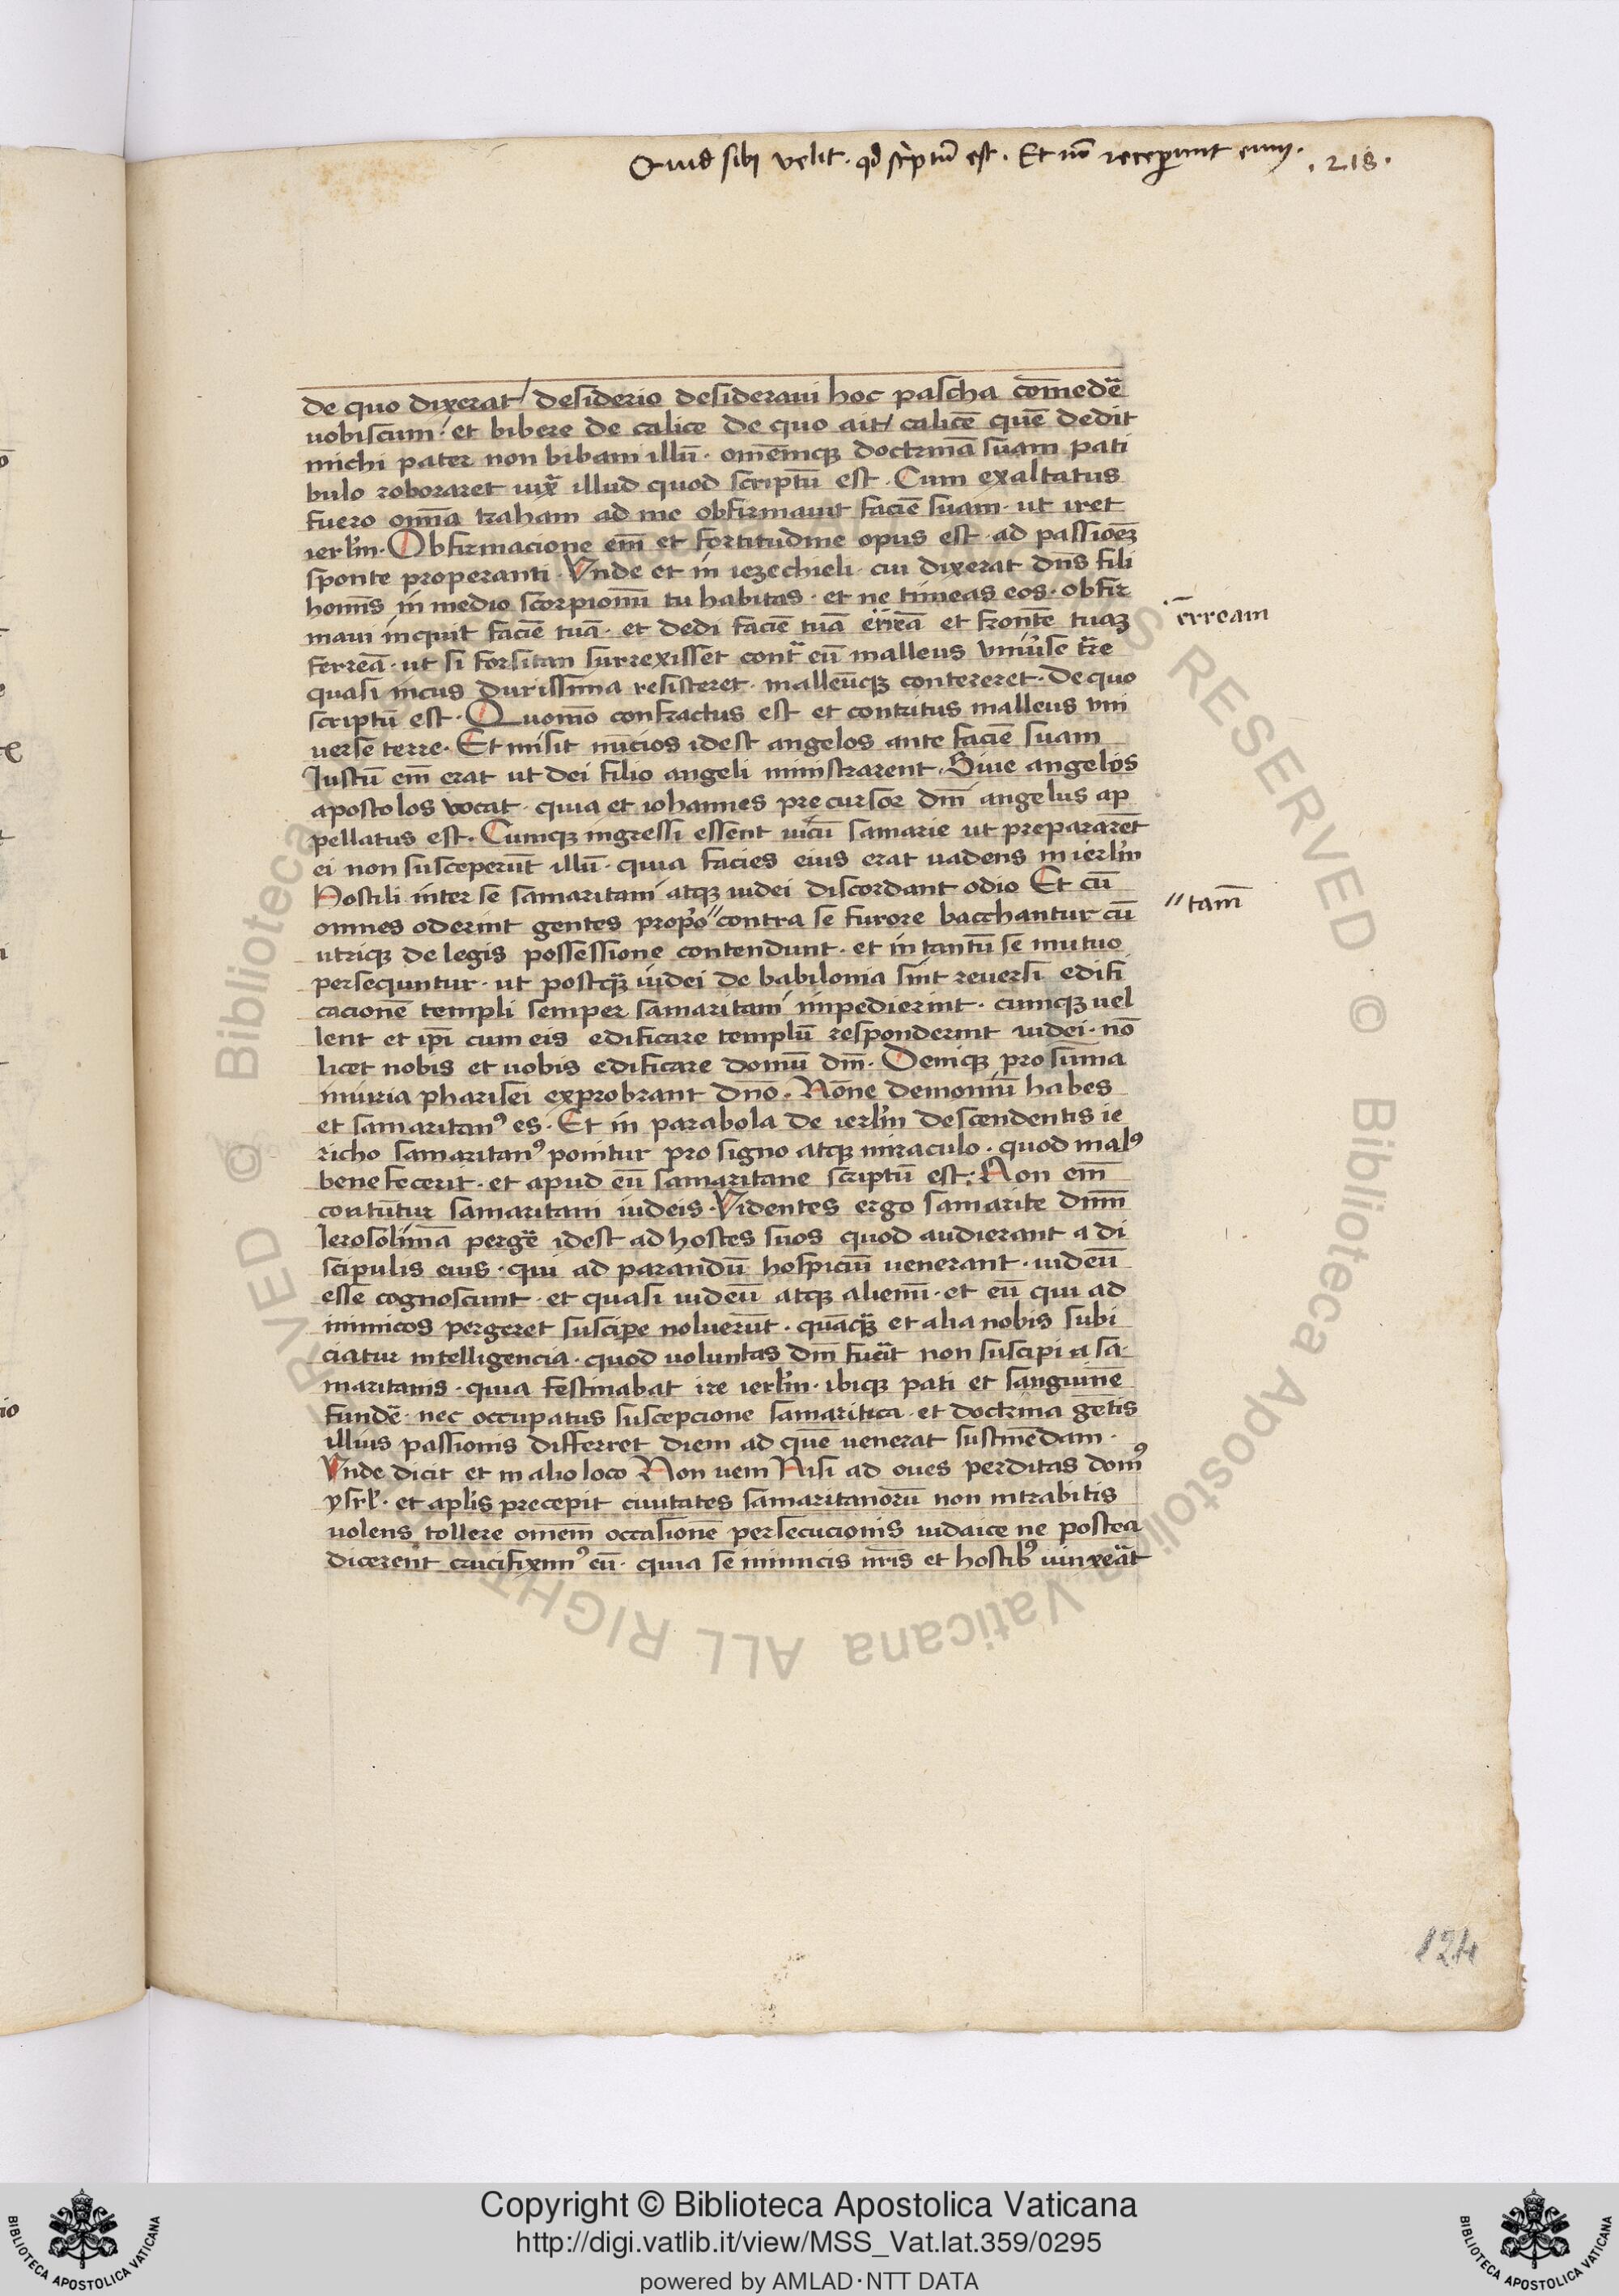 Quid sibi velit · qd scriptū est · Et nō receperunt eum · . 218 .
de quo dixerat / desiderio desideraui hoc pascha comedē
uobiscum / et bibere de calice de quo ait / calicē quē dedit
michi pater non bibam illū · omēmqꝫ doctrinā suam pati
bulo roboraret iux̄ illud quod scriptū est · Cum exaltatus
fuero omīa traham ad me obfirmauit faciē suam · ut iret
ierlm̄ · Obfirmacione em̄ et fortitudine opus est · ad passiōeꝫ
sponte properanti · Vnde et in iezechieli · cui dixerat dn̄s fili
homīs in medio scorpionū tu habitas · et ne timeas eos · obfir
maui inquit faciē tuā · et dedi faciē tuā ēr̄eā et frontē tuaꝫ
ērream
ferreā · ut si forsitan surrexisset cont̄ eū malleus vniūse tr̄e
quasi incus durissima resisteret · malleūqꝫ contereret · De quo
scriptū est · Quomō confractus est et contritus malleus vni
uerse terre · Et misit nūcios idest angelos ante faciē suam
Iustū em̄ erat ut dei filio angeli ministrarent · Siue angelos
apostolos vocat · quia et iohannes precursor dn̄i angelus ap
pellatus est · Cumqꝫ ingressi essent uicū samarie ut prepararēt
ei non susceperūt illū · quia facies eius erat uadens in ierlm̄
Hostili inter se samaritani atqꝫ iudei discordant odio Et cū
omnes oderint gentes prop̄o // contra se furore bacchantur cū
// tam̄
utriqꝫ de legis possessione contendunt · et in tantū se mutuo
persequntur · ut postqꝫ̄ iudei de babilonia sint reuersi edifi
cacionē templi semper samaritani impedierint · cumqꝫ uel
lent et ip̄i cum eis edificare templū responderint iudei · nō
licet nobis et uobis edificare domū dn̄i · Deniqꝫ pro sūma
iniuria pharisei exprobrant dn̄o · Nōne demoniū habes
et samaritanꝰ es · Et in parabola de ierlm̄ descendentis ie
richo samaritanꝰ ponitur pro signo atqꝫ miraculo · quod malꝰ
bene fecerit · et apud eū samaritane scriptū est : Non em̄
contūtur samaritani iudeis · Videntes ergo samarite dn̄m
Ierosolimā pergē idest ad hostes suos quod audierant a di
scipulis eius · qui ad parandū hospiciū uenerant · iudeū
esse cognoscunt · et quasi iudeū atqꝫ alienū · et eū qui ad
inimicos pergeret suscipe noluerūt · quāqꝫ̄ et alia nobis subi
ciatur intelligencia · quod uoluntas dn̄i fuāt non suscipi a sa·
maritanis · quia festinabat ire ierlm̄ · ibiqꝫ pati et sanguinē
fundē · nec occupatus suscepcione samaritica · et doctrina gētis
illius passionis differret diem ad quē uenerat sustinēdam ·
Vnde dicit et in alio loco Non ueni Nisi ad oues perditas domꝰ
ysrl̄ · et apl̄is precepit ciuitates samaritanorū non intrabitis
uolens tollere omēm occasionē persecucionis iudaice ne postea
dicerent crucifiximꝰ eū · quia se inimicis nr̄is et hostibꝰ uinxeāt
124
Copyright © Biblioteca Apostolica Vaticana
http://digi.vatlib.it/view/MSS_Vat.lat.359/0295
powered by AMLAD·NTT DATA